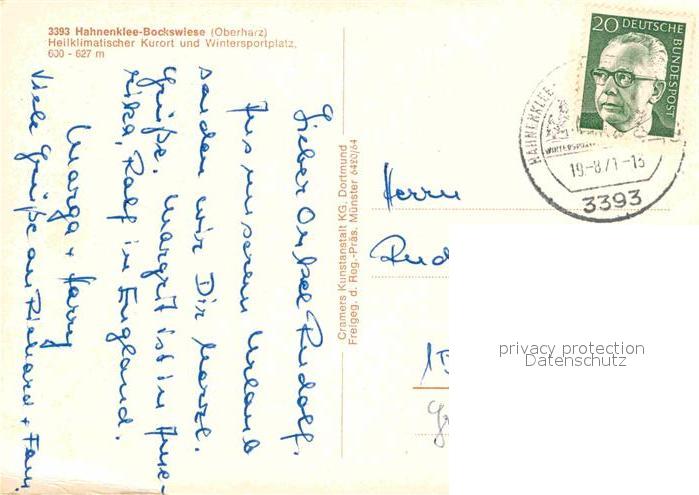 3393 Hahnenklee-Bockswiese (Oberharz)
Heilklimatischer Kurort und Wintersportplatz,
600 - 627 m
Lieber Onkel Rudolf.
Aus unserem Urlaub
senden wir Dir herzl.
Grüße. Margrit ist in Ame-
rika, Ralf in England.
Marga + Harry
Viele Grüße an Richard + Fam.
Cramers Kunstanstalt KG, Dortmund
Freigeg. d. Reg.-Präs. Münster 6420/64
20 DEUTSCHE
BUNDESPOST
HAHNENKLEE
WINTERSPORT
19-8-71-13
3393
Herrn
Rud
privacy protection
Datenschutz